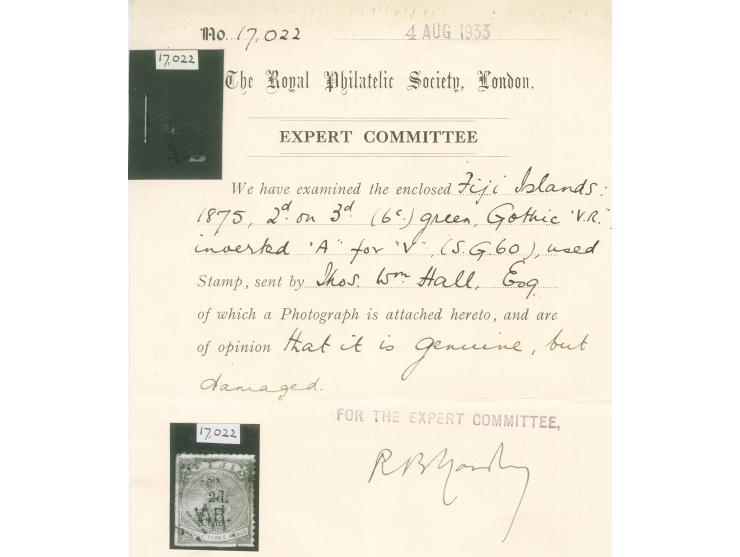 No. 17,022 4 AUG 1933
17,022
The Royal Philatelic Society, London.
EXPERT COMMITTEE
We have examined the enclosed Fiji Islands:
1875, 2d. on 3d. (6c.) green, Gothic "V.R.",
inverted "A" for "V", (S.G.60), used
Stamp, sent by Thos. Wm Hall, Esq.
of which a Photograph is attached hereto, and are
of opinion that it is genuine, but
damaged.
FOR THE EXPERT COMMITTEE,
17,022
FIJI
Six
2d.
THREE PENCE